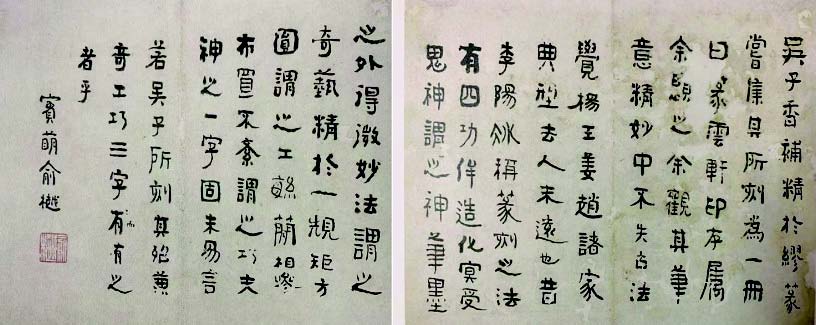 吳子香補精於繆篆
嘗集其所刻為一冊
曰篆雲軒印存屬
余題之余觀其筆
意精妙中不失古法
覺楊王姜趙諸家
典型去人未遠也昔
李陽冰稱篆刻之法
有四功侔造化冥受
鬼神謂之神筆墨
之外得微妙法謂之
奇藝精於一規矩方
圓謂之工緐簡相參
布置不紊謂之巧夫
神之一字固未易言
若吳子所刻其殆兼
奇工巧三字有之
者乎
賓萌俞樾